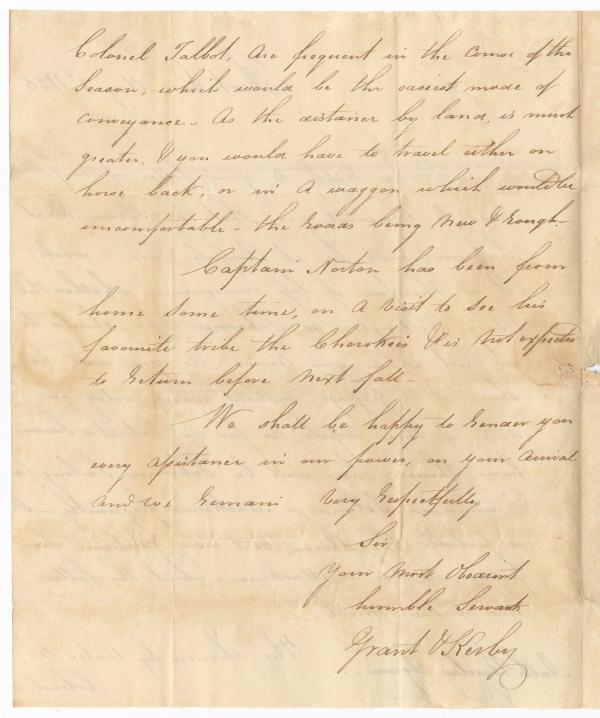 Colonel Talbot, are frequent in the course of the
Season, which would be the easiest mode of
conveyance - As the distance by land, is much
greater, & you would have to travel either on
horse back, or in a waggon which would be
uncomfortable - the roads being New & rough -
Captain Norton has been from
home some time, on a visit to see his
favourite tribe the Cherokees & is not expected
to return before next fall -
We shall be happy to render you
every assistance in our power, on your arrival
and we remain Very respectfully
Sir
Your Most Obedient
humble Servants
Grant & Kerby